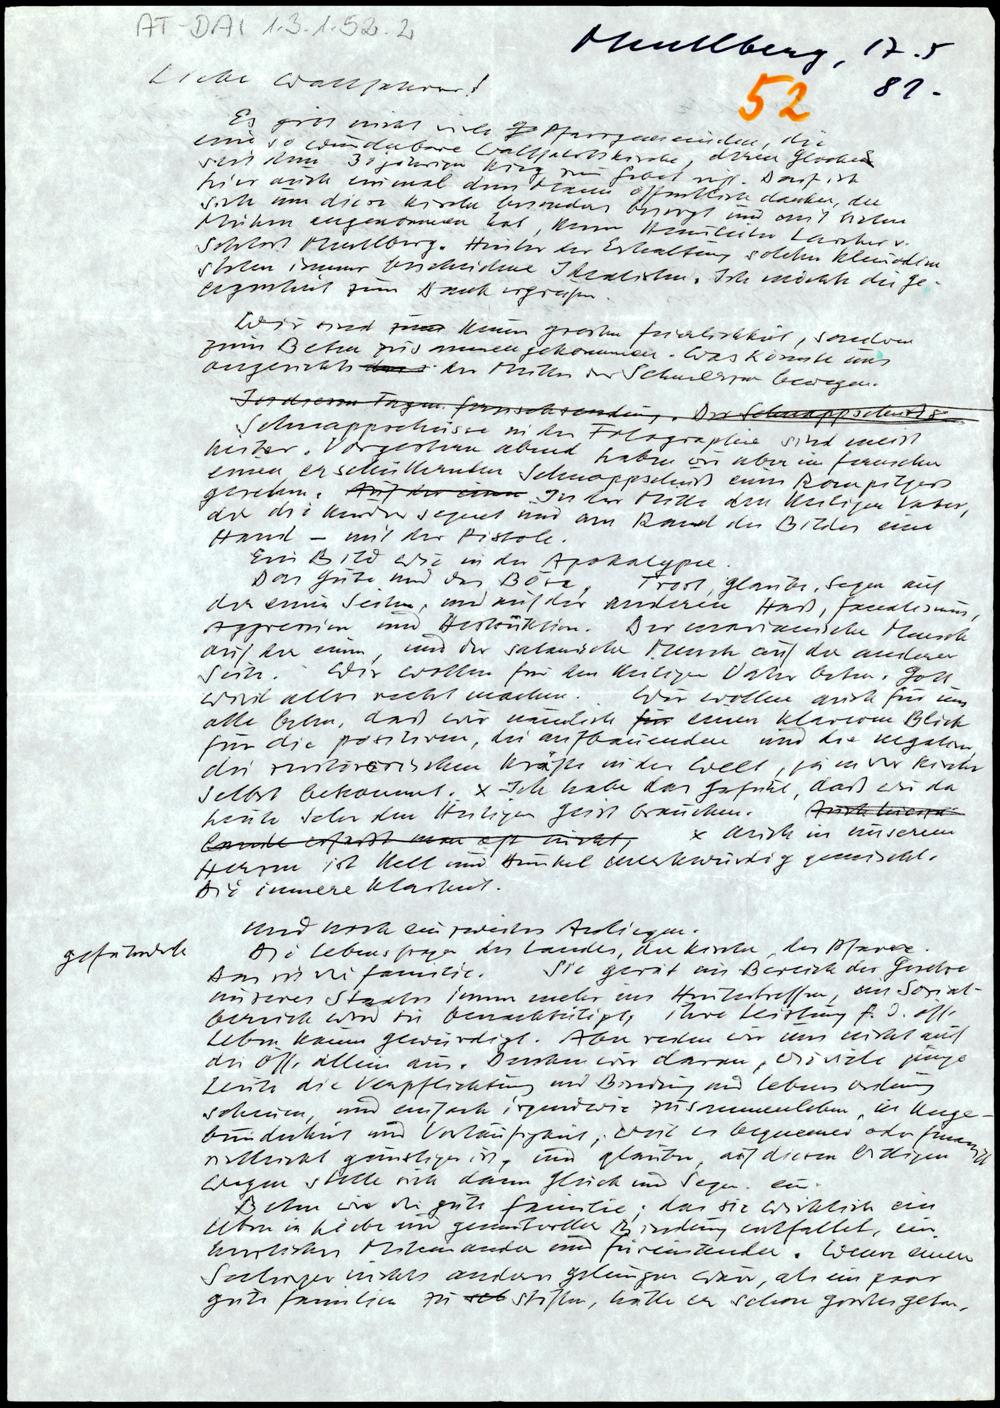 AT-DAI 1.3.1.52.2
17.5
81.
52
Liebe Wallfahrer!
Es gibt nicht viele Pfarrgemeinden, die
eine so wunderbare Wallfahrtskirche, deren Glocken
seit dem 30 jährigen Krieg zum Gebet ruft. Darf ich
hier auch einmal dem Mann öffentlich danken, der
sich um diese Kirche besonders besorgt und mit vielen
Mühen angenommen hat, Herrn v.
Schloss. Hinter der Erhaltung solcher Kleinodien
stehen immer bescheidene Idealisten. Ich möchte die Ge-
legenheit zum Dank ergreifen.
Wir sind zum keiner großen Feierlichkeit, sondern
zum Beten zusammengekommen. Was könnte uns
angesichts der Mutter der Schmerzen bewegen.
In diesen Tagen Fernsehsendung. Der Schnappschuss
Schnappschüsse in der Fotographie sind meist
heiter. Vorgestern abend haben wir aber im Fernsehen
einen erschütternden Schnappschuß eines Rompilgers
gesehen. Auf der einen In der Mitte den Heiligen Vater,
der die Kinder segnet und am Rand des Bildes eine
Hand – mit der Pistole.
Ein Bild wie in der Apokalypse.
Das Gute und das Böse, Trost, Glaube, Segen auf
der einen Seite, und auf der anderen Haß, Fanatismus,
Aggression und Destruktion. Der marianische Mensch
auf der einen, und der satanische Mensch auf der anderen
Seite. Wir wollen für den Heiligen Vater beten. Gott
wird alles recht machen. Wir wollen auch für uns
alle beten, daß wir nämlich für einen klareren Blick
für die positiven, die aufbauenden und die negativen,
die Kräfte in der Welt, ja in der Kirche
selbst bekommt. x Ich habe das Gefühl, daß wir da
heute sehr den Heiligen Geist brauchen. Auch hierzu-
lande erfaßt man oft nicht, x Auch in unserem
Herzen ist Hell und Dunkel merkwürdig gemischt.
Die innere Klarheit.
Und noch ein zweites Anliegen.
gefährdete
Die Lebensfrage des Landes, der Kirche, der Pfarre.
Das ist die Familie. Sie gerät im Bereich der Gesetze
unseres Staates immer mehr ins Hintertreffen, im Sozial-
bereich wird sie benachteiligt, ihre Leistung f. d. öff.
Leben kaum gewürdigt. Aber reden wir uns nicht auf
die Öff. allein aus. Denken wir daran, wieviele junge
Leute die Verpflichtung und Bindung und Lebensordnung
scheuen, und einfach irgendwie zusammenleben, in Unge-
bundenheit und Vorläufigkeit, weil es bequemer oder finanziell
vielleicht günstiger ist, und glauben, auf diesen
Wegen stelle sich dann Glück und Segen ein.
Beten wir die gute Familie, das sie wirklich ein
Leben in Liebe und Bindung entfaltet, ein
herrliches Miteinander und Füreinander. Wenn einem
Seelsorger nichts anderes gelungen wäre, als ein paar
gute Familien zu stiften, hätte er schon Großes getan.